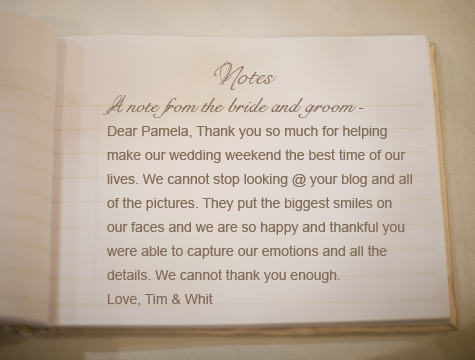 Notes
A note from the bride and groom -
Dear Pamela, Thank you so much for helping
make our wedding weekend the best time of our
lives. We cannot stop looking @ your blog and all
of the pictures. They put the biggest smiles on
our faces and we are so happy and thankful you
were able to capture our emotions and all the
details. We cannot thank you enough.
Love, Tim & Whit